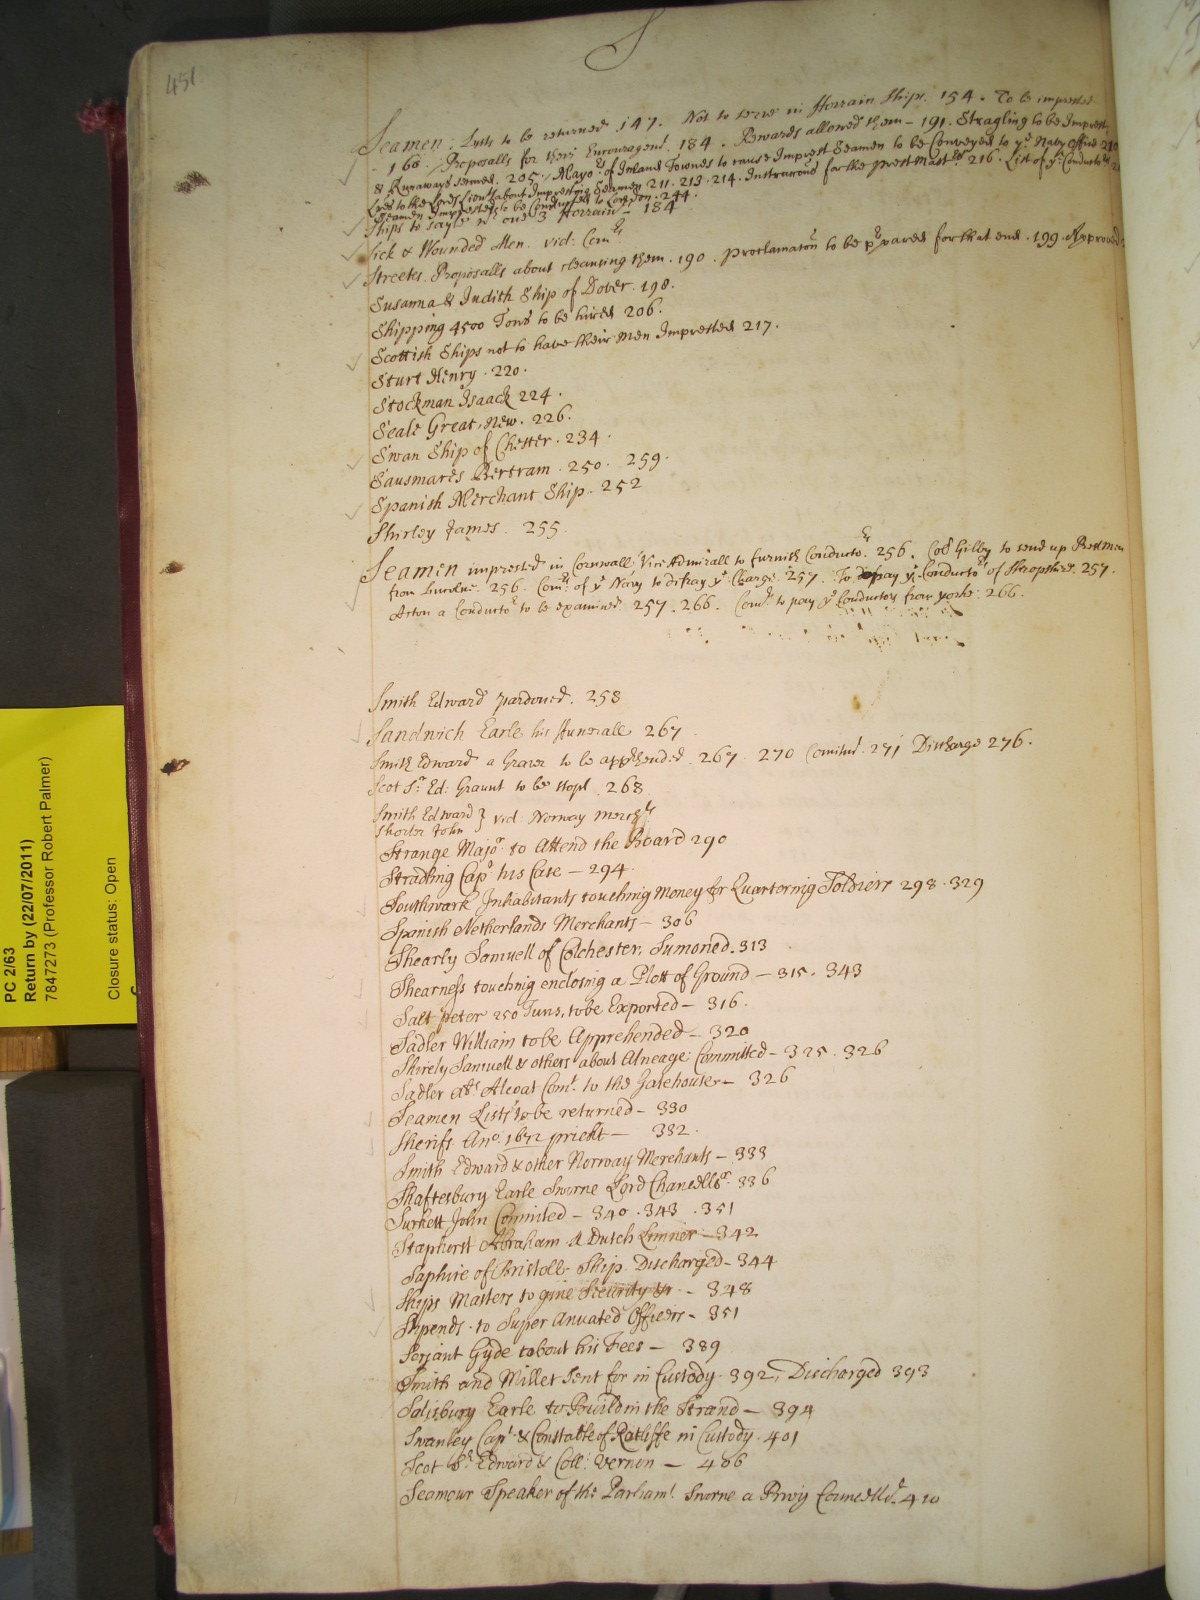 S
451
Seamen. Lists to be returned 147. Not to serve in Forrain Ships. 154. To be imprested
166. Proposalls for their Encouragemt. 184. Rewards allowed them - 191. Stragling to be Imprest
& Runaways seised. 205. Mayors of Inland Townes to cause Imprest Seamen to be Conveyed to ye Navy Office 210
Lres to the Lords Lieuts about Impresting Seamen 211. 213. 214. Instructions for the prest Mastrs 216. List of ye Conductors
Seamen Impressed to be Conducted to London. 244.
Ships to sayle wth one 3 Forrain - 184
Sick & Wounded Men. vid: Comrs
Streets. Proposalls about cleansing them. 190. Proclamation to be prpared for that end. 199. Approved
Susanna & Judith Ship of Dover. 198.
Shipping 4500 Tons to be hired 206.
Scottish Ships not to have their men Impressed 217.
Sturt Henry. 220.
Stockman Isaack 224.
Seale Great, New. 226.
Swan Ship of Chester. 234.
Sausmares Bertram. 250. 259.
Spanish Merchant Ship. 252
Shirley James. 255.
Seamen imprested in Cornwall Vice Admirall to furnish Conductors. 256. Coll Gilby to send up Prestmen
from Lincolne. 256. Comrs of ye Navy to defray ye Charge 257. To pay ye Conductors of Shropshire. 257.
Acton a Conductor to be examined. 257. 266. Comrs to pay ye Conductors from yorke. 266.
Smith Edward pardoned. 258
Sandwich Earle his Funerall 267
Smith Edward a Graver to be apprhended. 267. 270 Comitted. 271 Discharge 276.
Scot Sr. Ed: Graunt to be stopt. 268
Smith Edward } vid: Norway Merchts
Shorter John
Strange Major to Attend the Board 290
Stradling Capt his Case - 294.
Southwark Inhabitants touching money for Quartering Soldiers 298. 329
Spanish Netherlands Merchants - 306
Shearly Samuell of Colchester, Sumoned. 313
Shearness touching enclosing a Plott of Ground - 315. 343
Salt peter 250 Tuns, to be Exported - 316.
Sadler William to be Apprehended - 320
Shirely Samuell & others about Alneage Committed - 325. 326
Sadler als Alcoat Comt. to the Gatehouse - 326
Seamen Lists to be returned - 330
Sherifs Ano. 1672 prickt - 332.
Smith Edward & other Norway Merchants - 333
Shaftesbury Earle Sworne Lord Chancellor. 336
Surkett John Commited - 340. 343. 351
Staphorst Abraham A Dutch Limner - 342
Saphire of Bristoll Ship Discharged - 344
Ships Masters to give Security &c. - 348
Stipends to Super Anuated Officers - 351
Serjant Gyde about his Fees - 389
Smith and Millet Sent for in Custody. 392, Discharged 393
Salisbury Earle to Build in the Strand - 394
Swanley Capt & Constable of Ratliffe in Custody. 401
Scot Sr Edward & Coll: Vernon - 406
Seamour Speaker of the Parliamt. Sworne a Privy Councellor. 410
PC 2/63
Return by (22/07/2011)
7847273 (Professor Robert Palmer)
Closure status: Open